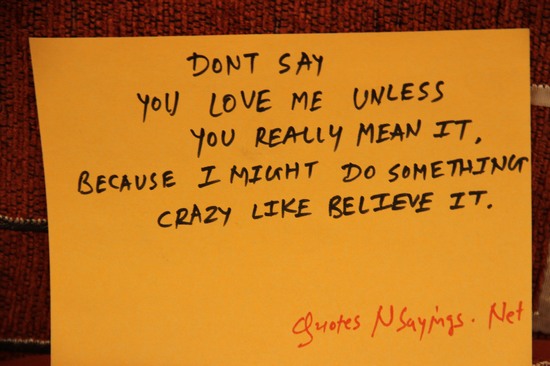 DONT SAY
YOU LOVE ME UNLESS
YOU REALLY MEAN IT,
BECAUSE I MIGHT DO SOMETHING
CRAZY LIKE BELIEVE IT.
Quotes NSayings. Net